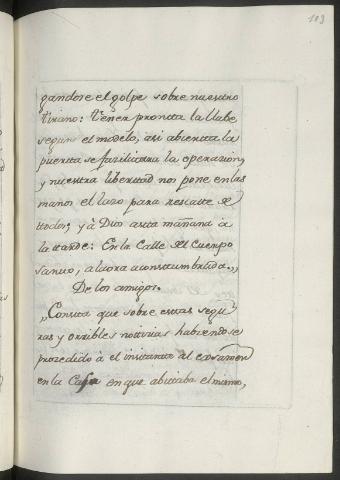 103
gandose el golpe sobre nuestro
tirano: tener pronta la llabe
segun el modelo, asi abierta la
puerta se facilitara la operacion,
y nuestra libertad nos pone en las
manos el lazo para rescate de
todos; y à Dios asta mañana à
la tarde: En la Calle del Cuerpo
santo, a la ora acostumbrada.,,
De los amigos.
,, Consta que sobre estas segu
ras y orribles noticias habiendose
procedido à el instante al examen
en la Casa en que abitaba el mismo,